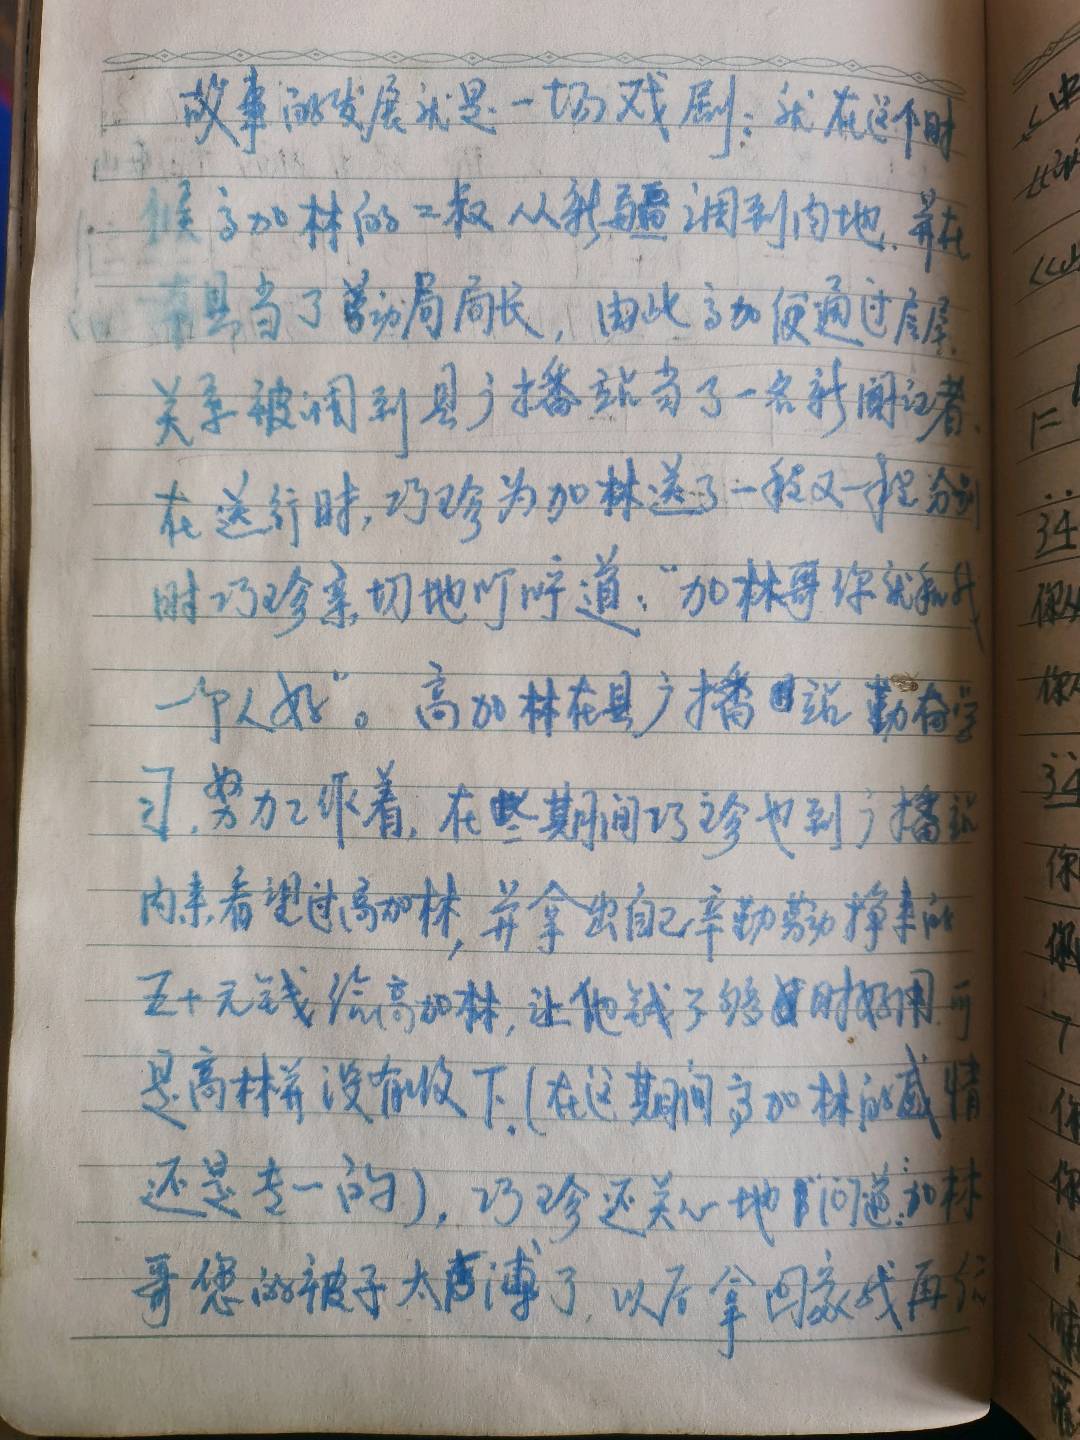 故事的发展就是一场戏剧：就在这个时
候高加林的二叔从新疆调到内地，并在
本县当了劳动局局长，由此高加便通过这层
关系被调到县广播站当了一名新闻记者，
在送行时，巧珍为加林送了一程又一程分别
时巧珍亲切地叮咛道："加林哥你就和我
一个人好"。高加林在县广播站勤奋学
习，努力工作着，在些期间巧珍也到广播站
内来看望过高加林，并拿出自己辛勤劳动挣来的
五十元钱给高加林，让他钱不够时好用，可
是高林并没有收下，（在这期间高加林的感情
还是专一的），巧珍还关心地问道：加林
哥您的被子太薄了，以后拿回家我再给